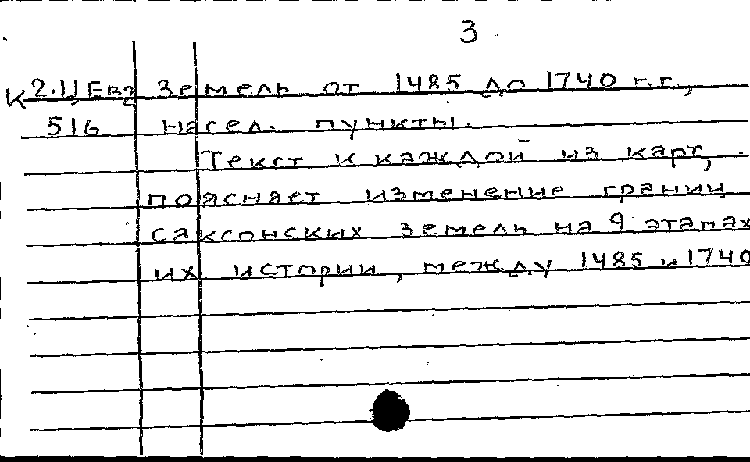 3
К 2.ЦЕв2 земель от 1485 до 1740 г.г.,
516 насел. пункты.
Текст к каждой из карт,
поясняет изменение границ
саксонских земель на 9 этапах
их истории, между 1485 и 1740